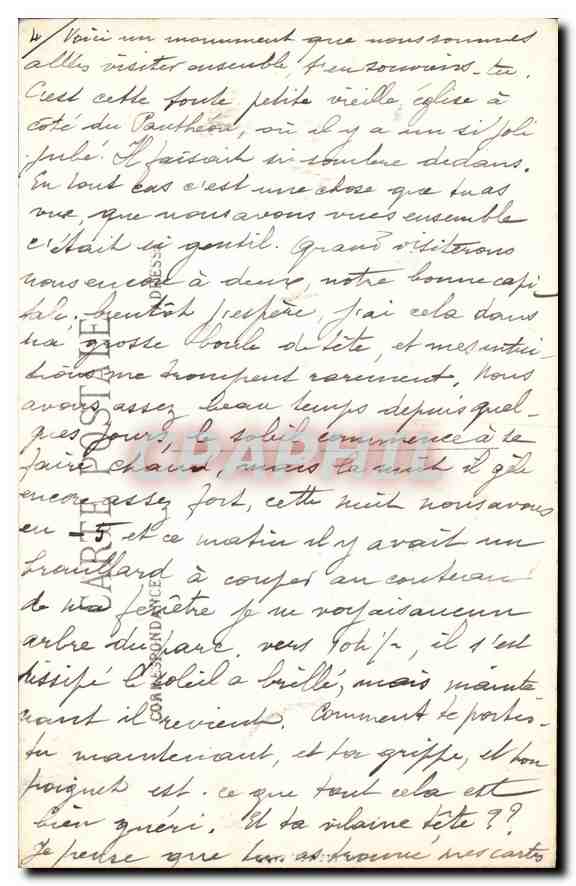 4/ Voici un monument que nous sommes
allés visiter ensemble, t'en souviens-tu.
C'est cette toute petite vieille église à
côté du Panthéon, où il y a un si joli
jubé. Il faisait si sombre dedans.
En tout cas c'est une chose que tu as
vue, que nous avons vues ensemble
c'était si gentil. Quand visiterons
nous encore à deux, notre bonne capi-
tale, bientôt j'espère, j'ai cela dans
ma grosse boule de tête, et mes intui-
tions me trompent rarement. Nous
avons assez beau temps depuis quel-
ques jours, le soleil commence à se
faire chaud, mais la nuit il gèle
encore assez fort, cette nuit nous avons
eu -5 et ce matin il y avait un
brouillard à couper au couteau
de ma fenêtre je ne voyais aucun
arbre du parc, vers 10h½, il s'est
dissipé le soleil a brillé, mais mainte
nant il revient. Comment te portes-
tu maintenant, et ta grippe, et ton
poignet est-ce que tout cela est
bien guéri. Et ta vilaine tête ??
Je pense que tu as trouvé mes cartes
CARTE POSTALE
CORRESPONDANCE
ADRESSE
CPARAMA